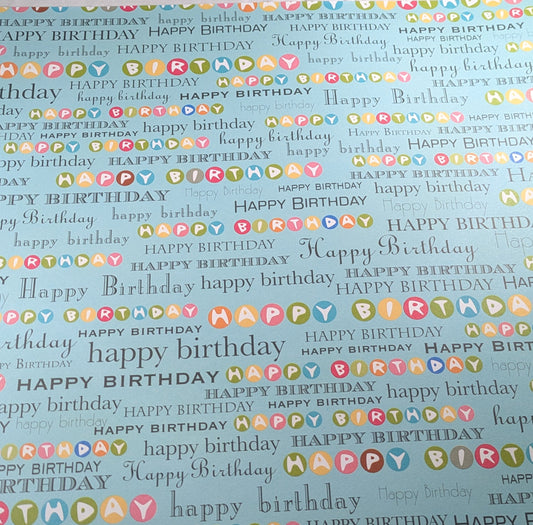 HAPPY BIRTHDAY happy birthday HAPPY BIRTHDAY
HAPPY BIRTHDAY happy birthday Happy Birthday HAPPY BIRTHDAY
HAPPY BIRTHDAY happy birthday HAPPY BIRTHDAY Happy Birthday happy birthday HAPPY BIRTHDAY
HAPPY BIRTHDAY HAPPY BIRTHDAY happy birthday
happy birthday HAPPY BIRTHDAY happy birthday
happy birthday HAPPY BIRTHDAY happy birthday Happy Birthday HAPPY BIRTHDAY
HAPPY BIRTHDAY happy birthday HAPPY BIRTHDAY
HAPPY BIRTHDAY HAPPY BIRTHDAY happy birthday HAPPY BIRTHDAY
HAPPY BIRTHDAY happy birthday
HAPPY BIRTHDAY HAPPY BIRTHDAY HAPPY BIRTHDAY
HAPPY BIRTHDAY Happy Birthday HAPPY BIRTHDAY happy birthday
HAPPY BIRTHDAY HAPPY BIRTHDAY happy birthday
Happy Birthday happy birthday HAPPY BIRTHDAY HAPPY BIRTHDAY
happy birthday HAPPY BIRTHDAY Happy Birthday Happy
HAPPY BIRTHDAY HAPPY BIRTHDAY
Happy Birthday HAPPY BIRTHDAY happy birthday
HAPPY BIRTHDAY HAPPY BIRTHDAY
HAPPY BIRTHDAY HAPPY BIRTHDAY HAPPY
happy birthday HAPPY BIRTHDAY HAPPY BIRTHDAY
HAPPY BIRTHDAY HAPPY BIRTHDAY HAPPY BIRTHDAY happy
happy birthday HAPPY BIRTHDAY HAPPY BIRTHDAY happy birthday
happy birthday HAPPY BIRTHDAY happy birthday
BIRTHDAY happy birthday HAPPY BIRTHDAY
HAPPY BIRTHDAY Happy Birthday HAPPY BIRT
HAPPY BIRTHDAY Happy Birthday
BIRTHDAY happy birthday